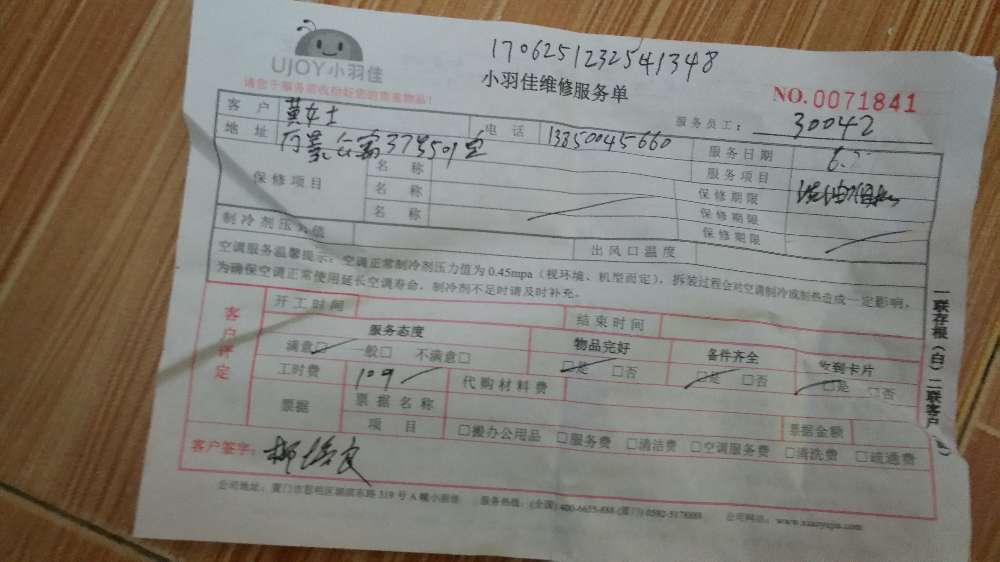 1706251232541348
UJOY小羽佳
小羽佳维修服务单
NO.0071841
请您于服务前收拾好您的贵重物品!
服务员工: 30042
客户 黄女士 电话 13850045660 服务日期 6.
地址 37号501室 服务项目
保修项目 名称 保修期限
名称 保修期限
名称 保修期限
制冷剂压力值 出风口温度
空调服务温馨提示:空调正常制冷剂压力值为0.45mpa(视环境、机型而定),拆装过程会对空调制冷或制热造成一定影响,
为确保空调正常使用延长空调寿命,制冷剂不足时请及时补充。
客户评定
开工时间 结束时间
服务态度 物品完好 备件齐全 收到卡片
满意□ 一般□ 不满意□ □是 □否 □是 □否 □是 □否
工时费 109 代购材料费
票据 票据名称 票据金额
项目 □搬办公用品 □服务费 □清洁费 □空调服务费 □清洗费 □疏通费
客户签字:
公司地址:厦门市思明区湖滨东路319号A幢小羽佳 服务热线:(全国)400-6655-888 (厦门)0592-5178888 公司网站:www.xiaoyujia.com
一联存根(白)二联客户